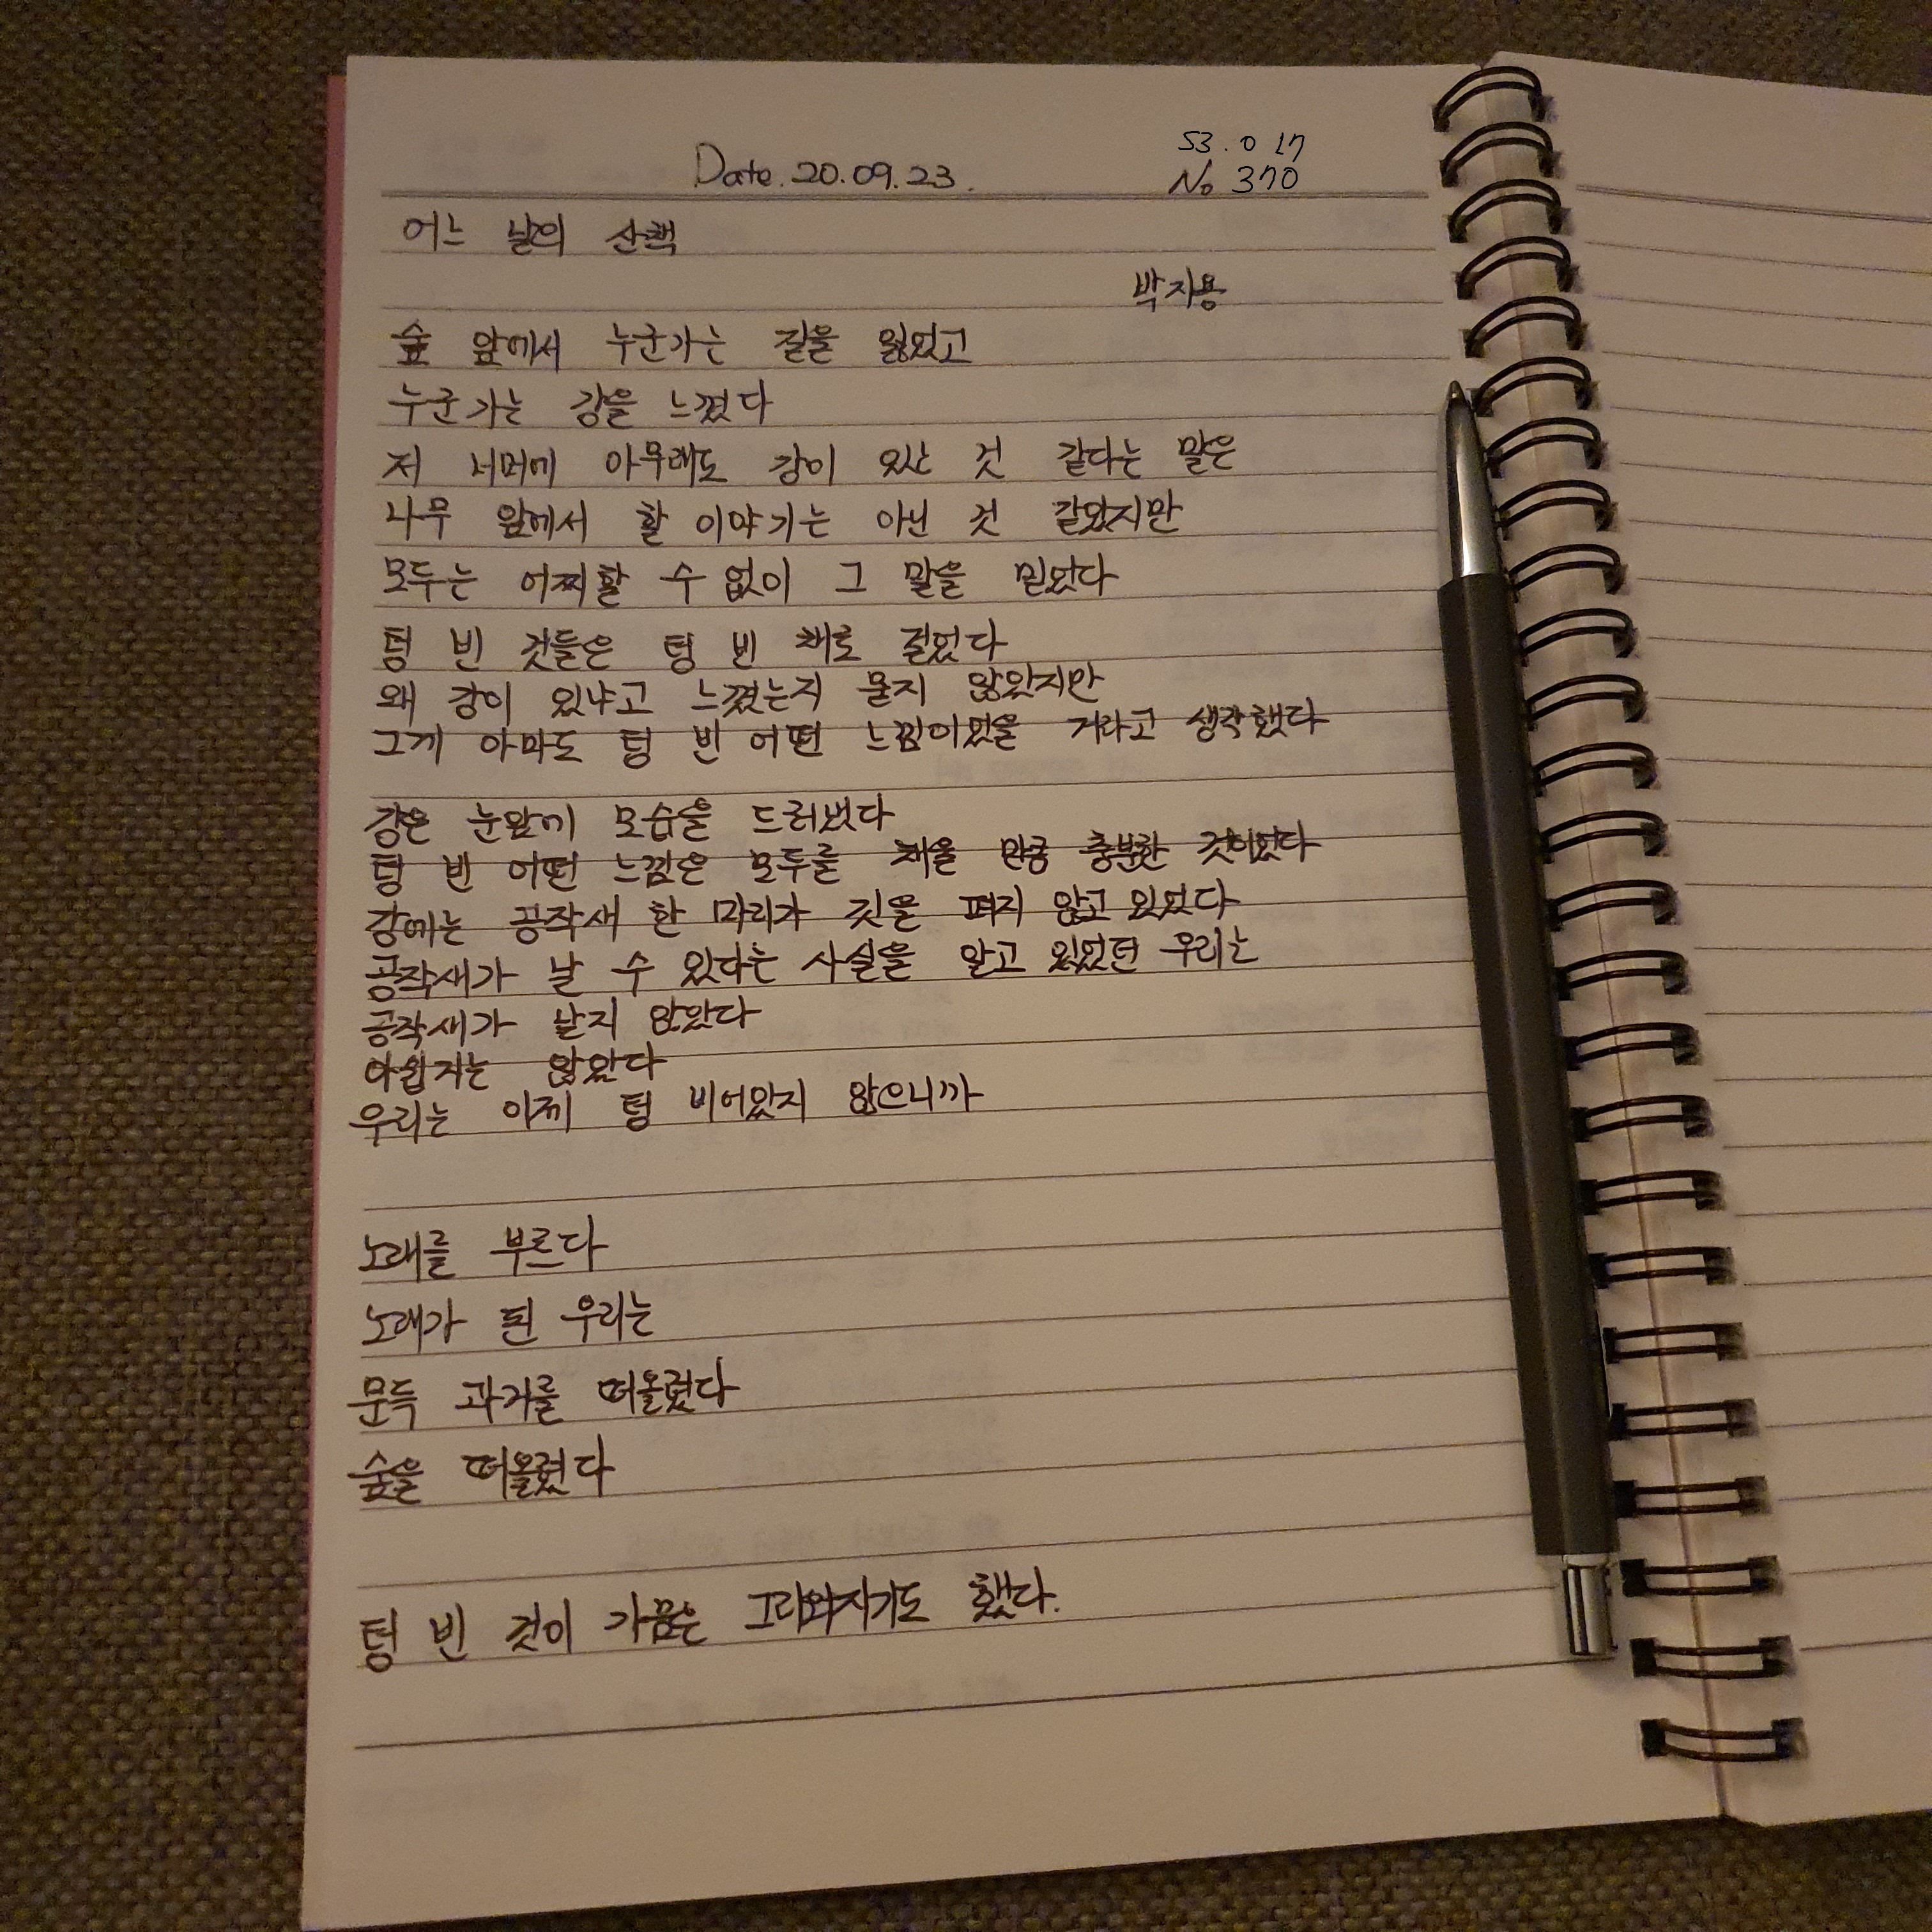 53.017
Date. 20.09.23.
No 370
어느 날의 산책
박지용
숲 앞에서 누군가는 길을 잃었고
누군가는 강을 느꼈다
저 너머에 아무래도 강이 있는 것 같다는 말은
나무 앞에서 할 이야기는 아닌 것 같았지만
모두는 어찌할 수 없이 그 말을 믿었다
텅 빈 것들은 텅 빈 채로 걸었다
왜 강이 있냐고 느꼈는지 묻지 않았지만
그게 아마도 텅 빈 어떤 느낌이었을 거라고 생각했다
강은 눈앞에 모습을 드러냈다
텅 빈 어떤 느낌은 모두를 채울 만큼 충분한 것이었다
강에는 공작새 한 마리가 깃을 펴지 않고 있었다
공작새가 날 수 있다는 사실을 알고 있었던 우리는
공작새가 날지 않았다
아쉽지는 않았다
우리는 이제 텅 비어있지 않으니까
노래를 부르다
노래가 된 우리는
문득 과거를 떠올렸다
숲을 떠올렸다
텅 빈 것이 가끔은 그리워지기도 했다.